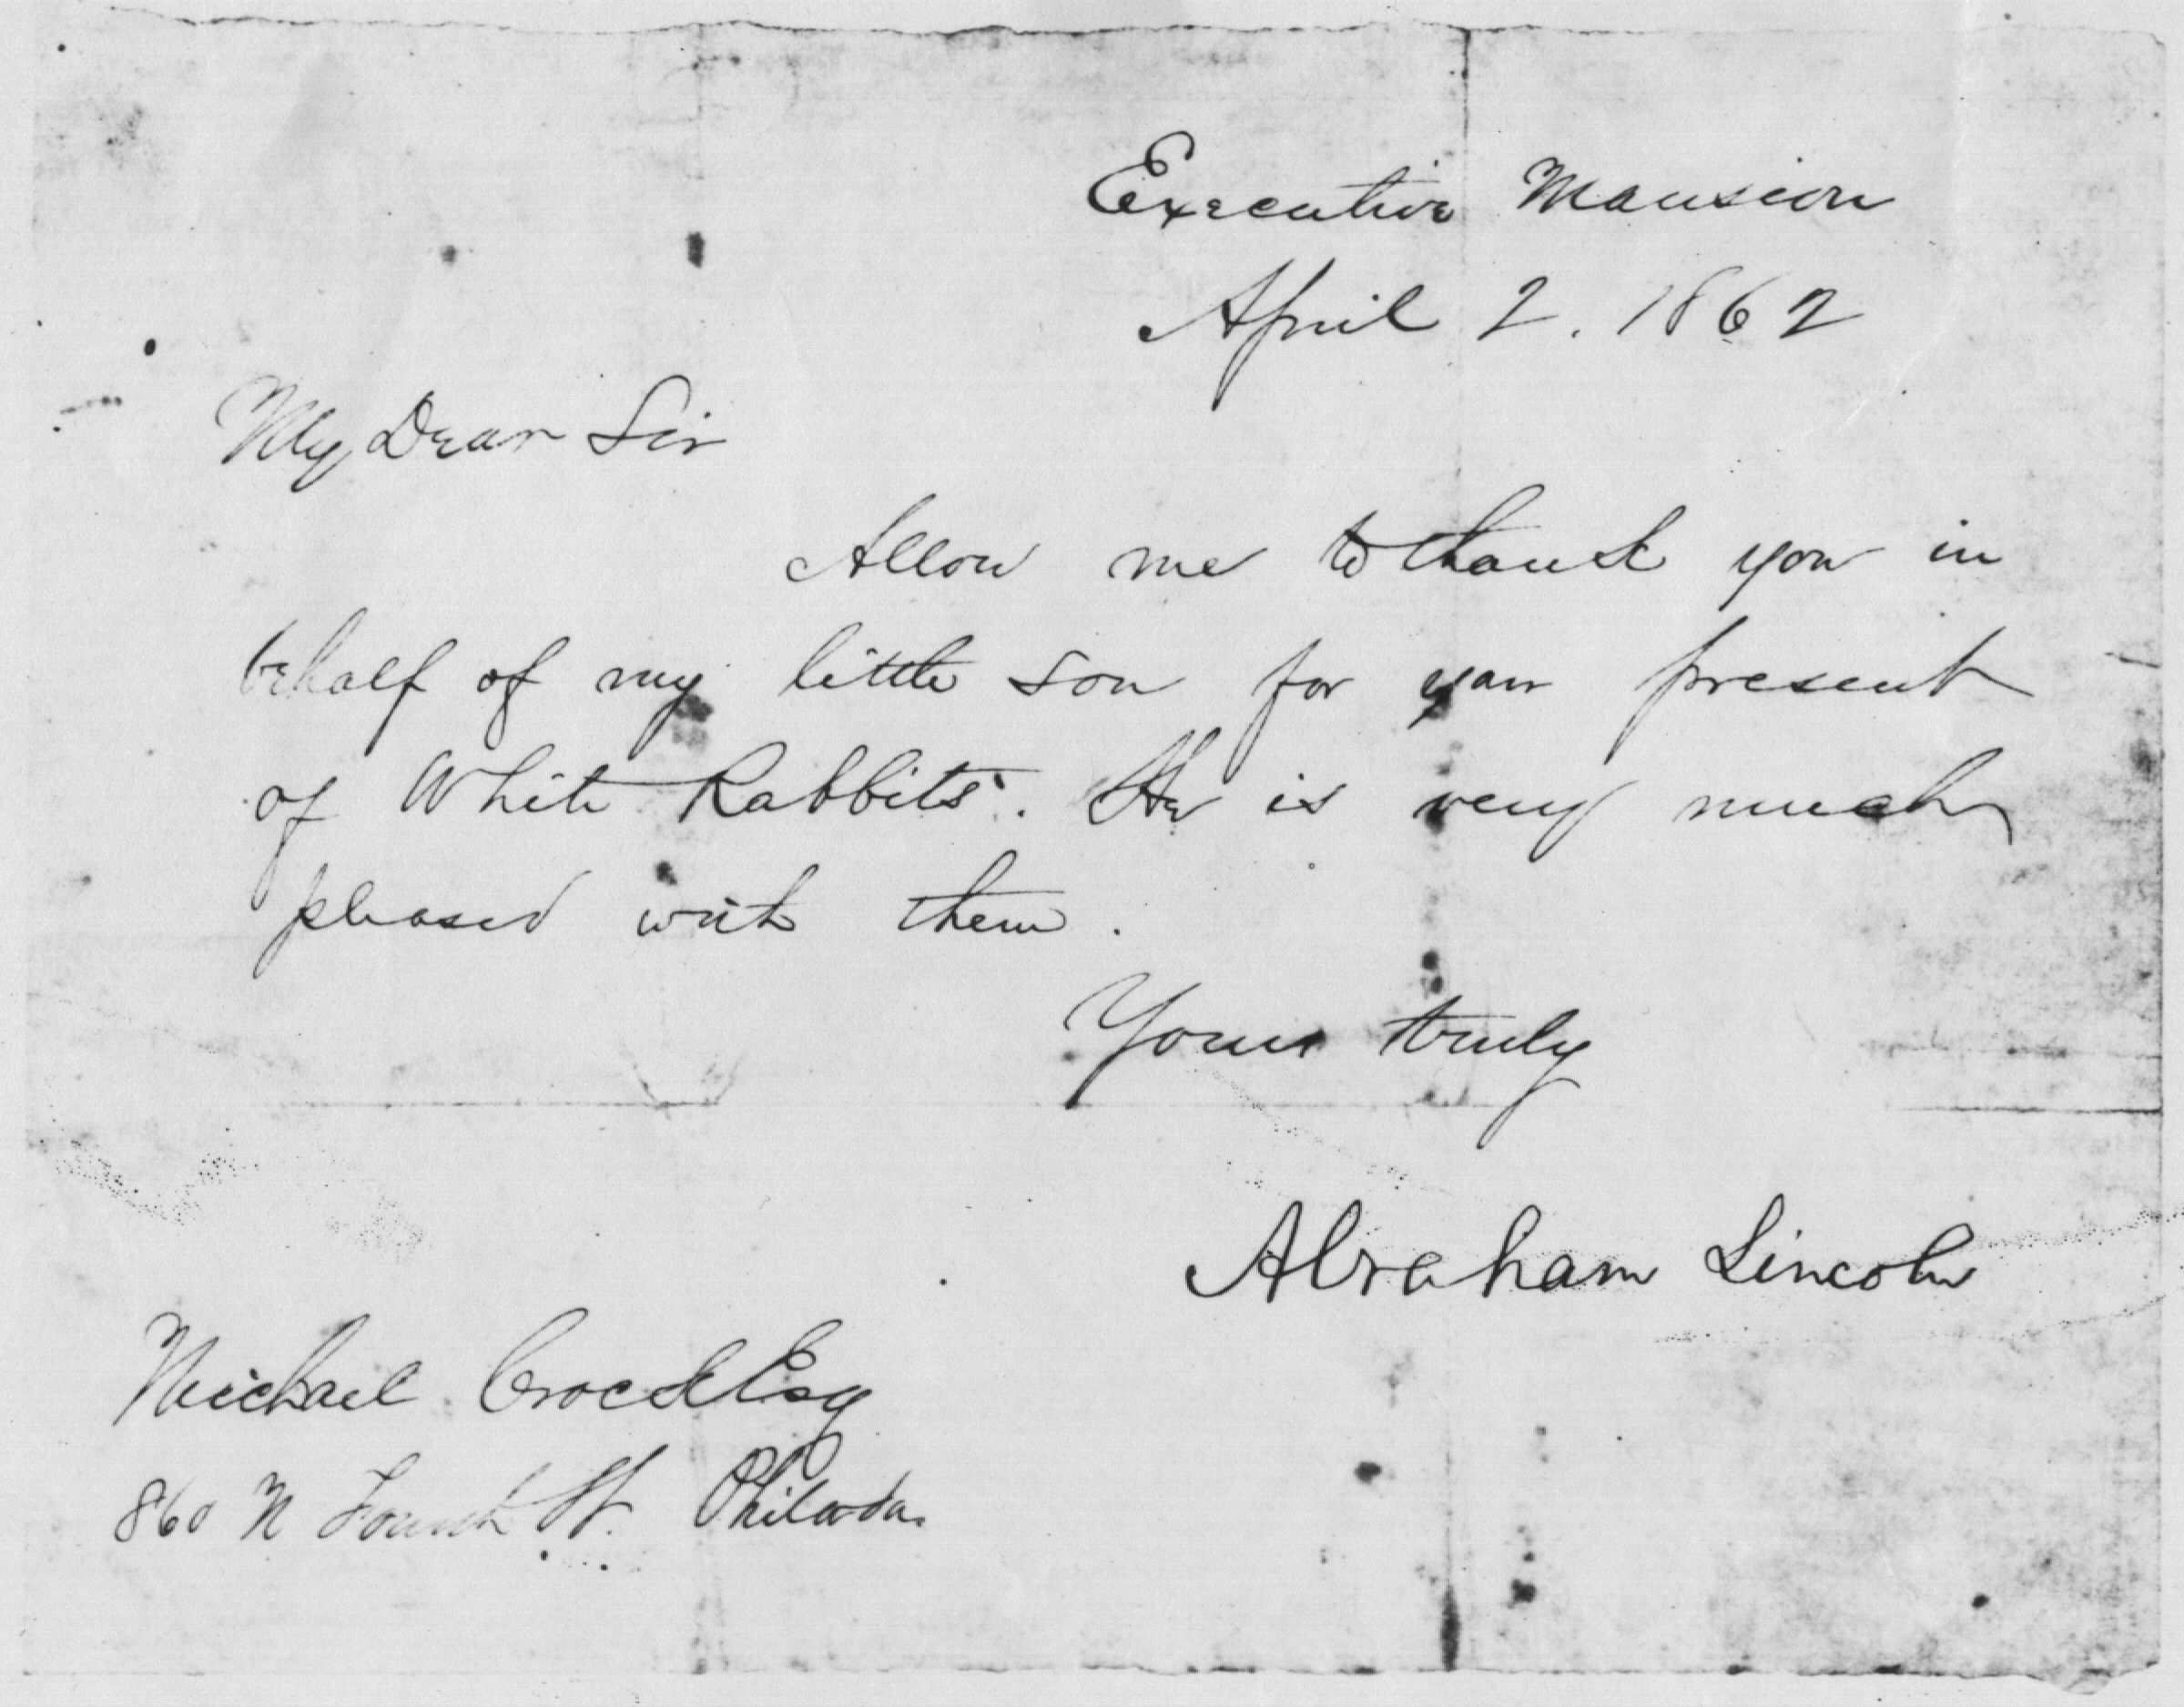 Executive Mansion
April 2. 1862
My Dear Sir
Allow me to thank you in
behalf of my little son for your present
of White Rabbits. He is very much
pleased with them.
Yours truly
Abraham Lincoln
Michael Crock Esq
860 N Fourth St. Philada.